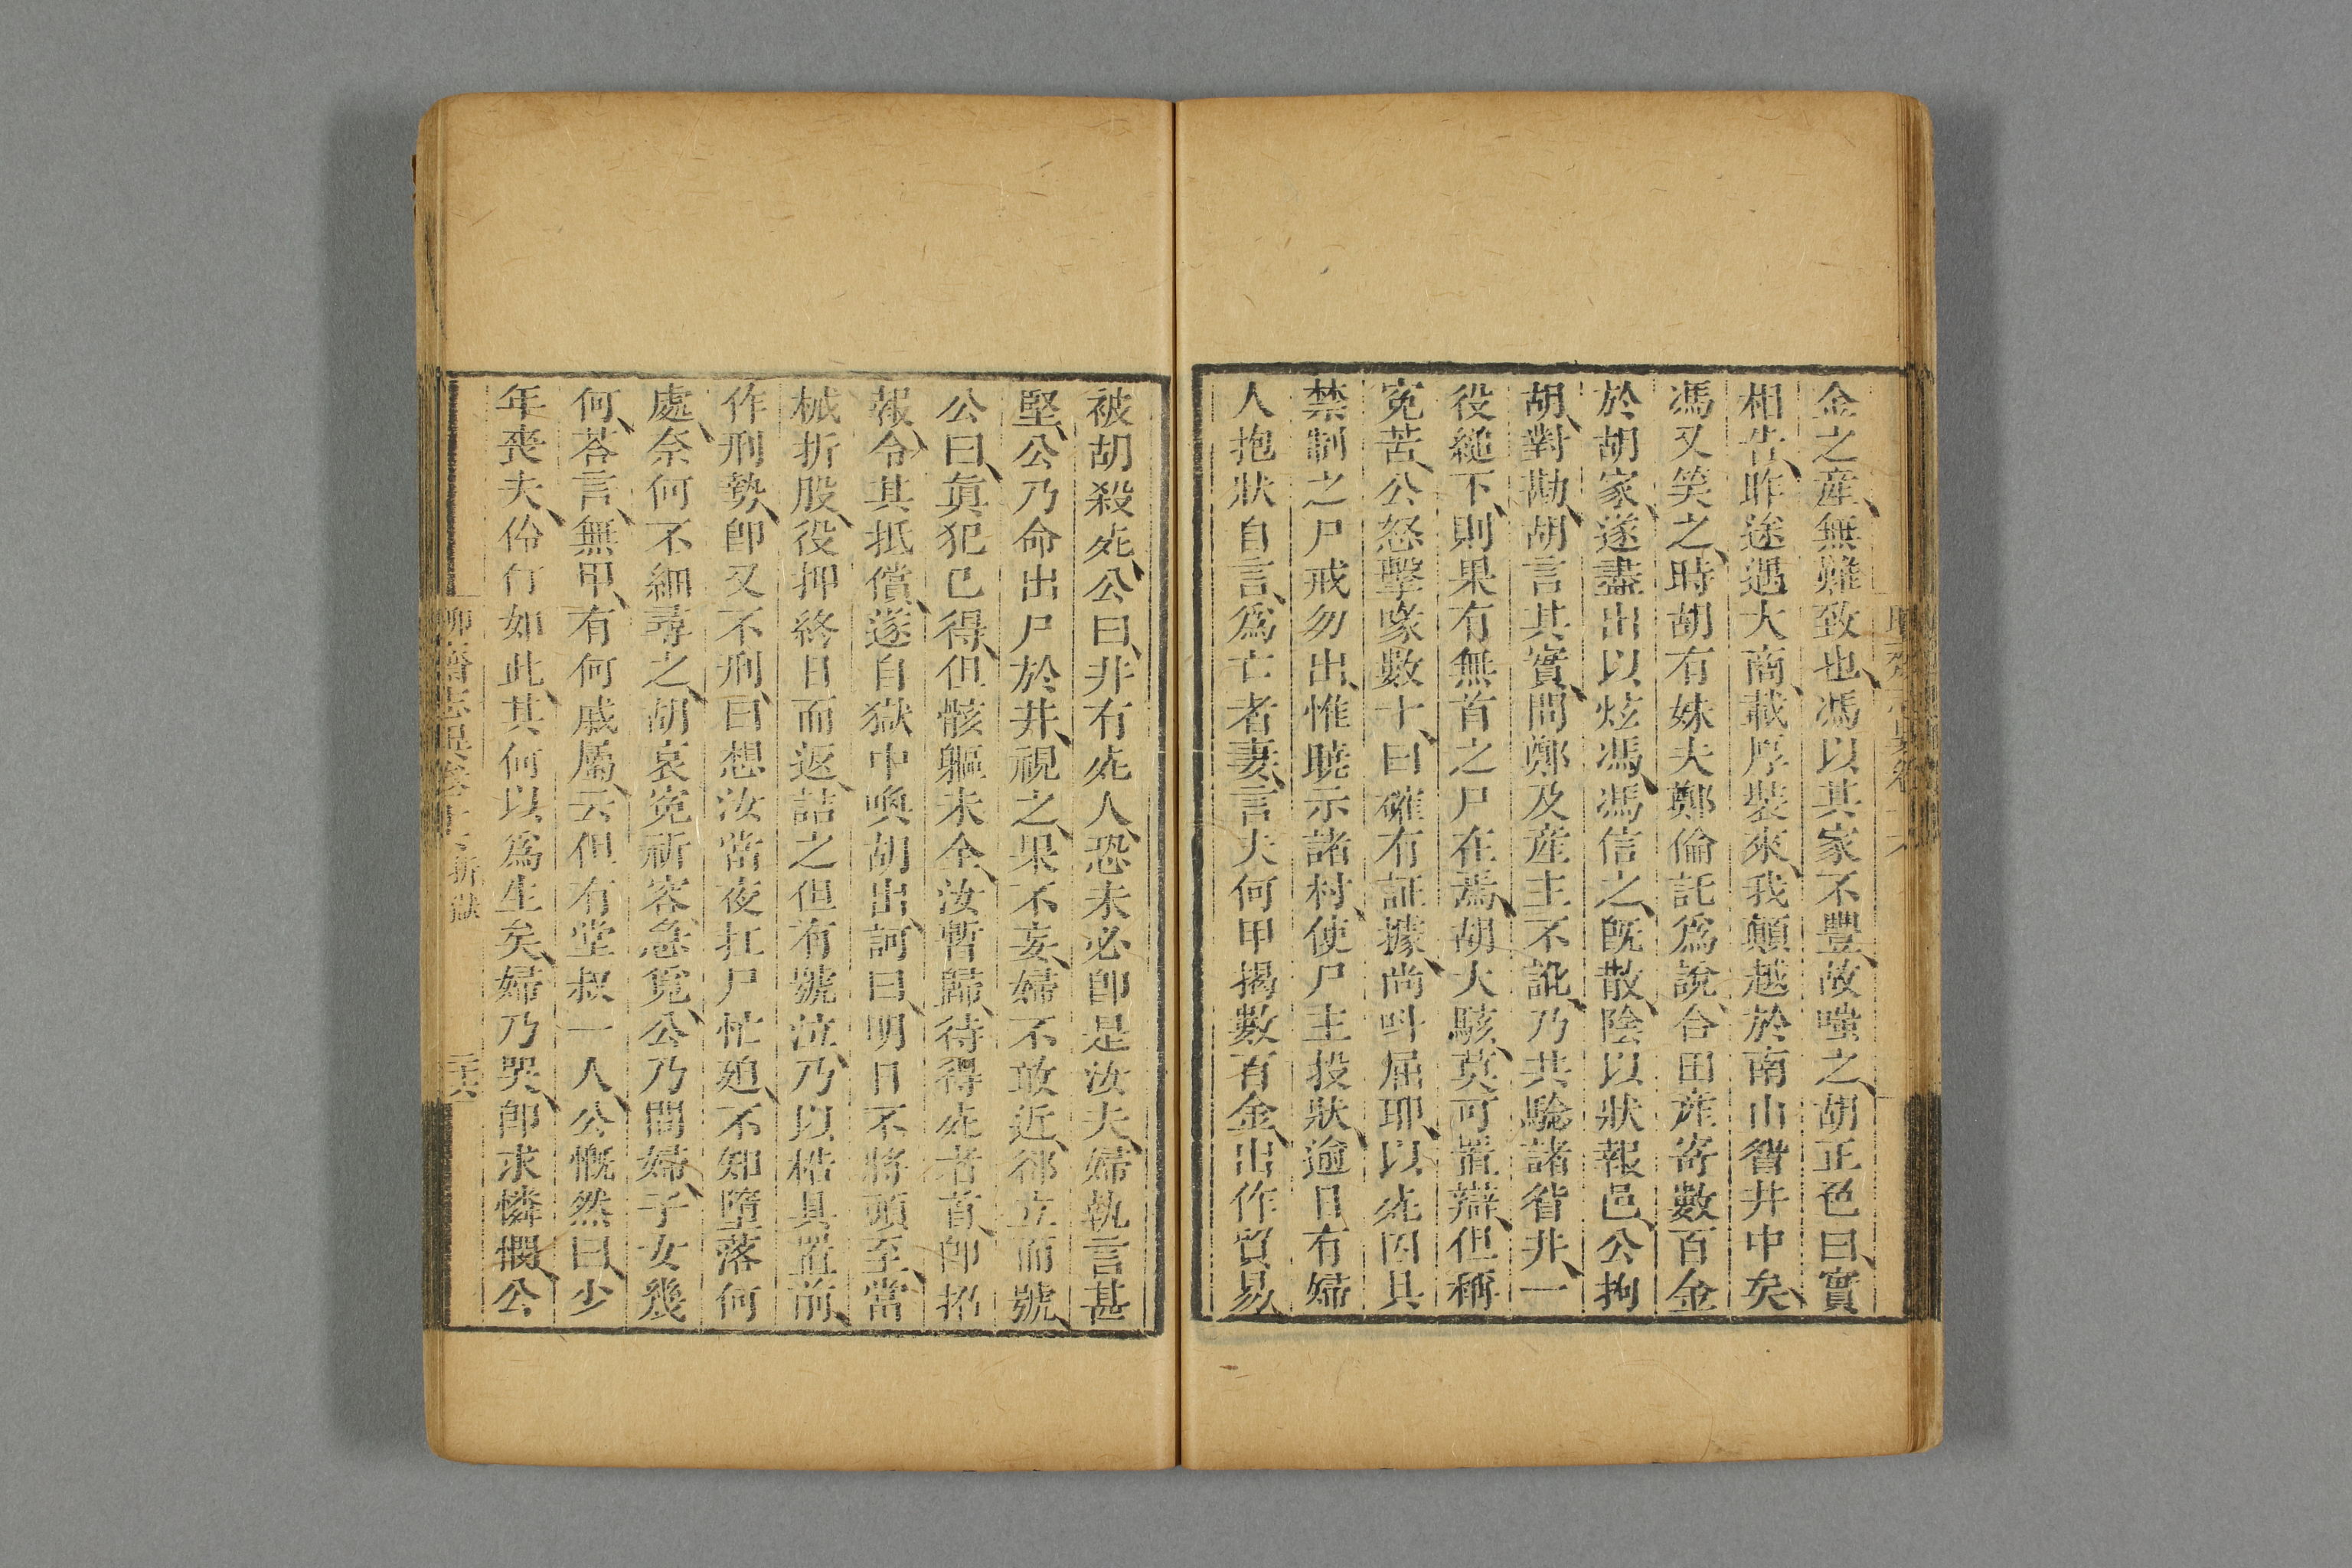 金之産、無難致也、馮以其家不豐、故嗤之、胡正色曰、實
相告、昨途遇大商、載厚裝來、我顛越於南山眢井中矣、
馮又笑之、時胡有妹夫鄭倫託爲說合田産寄數百金
於胡家、遂盡出以炫馮、馮信之、旣散、陰以狀報邑、公拘
胡、對勘、胡言其實、問鄭及産主不訛、乃共驗諸眢井、一
役縋下、則果有無首之尸在焉、胡大駭、莫可置辯、但稱
寃苦、公怒擊喙數十、曰確有証據、尚叫屈耶、以死囚具
禁制之尸戒勿出、惟曉示諸村、使尸主投狀、逾日有婦
人抱狀自言、爲亡者妻、言夫何甲揭數百金、出作貿易、
被胡殺死、公曰、井有死人、恐未必卽是汝夫、婦執言甚
堅、公乃命出尸於井、視之、果不妄、婦不敢近、郤立而號、
公曰、眞犯已得、但骸軀未全、汝暫歸、待得死者首、卽招
報、令其抵償、遂自獄中喚胡出、訶曰、明日不將頭至、當
械折股、役押終日而返、詰之但有號泣、乃以梏具置前、
作刑勢、卽又不刑、曰想汝當夜扛尸忙廹、不知墮落何
處、奈何不細尋之、胡哀寃祈容急覓、公乃問婦、子女幾
何、荅言、無甲、有何戚屬、云但有堂叔一人、公慨然曰、少
年喪夫、伶仃如此、其何以爲生矣、婦乃哭、卽求憐憫、公
聊齋志異卷十六 折獄 三六